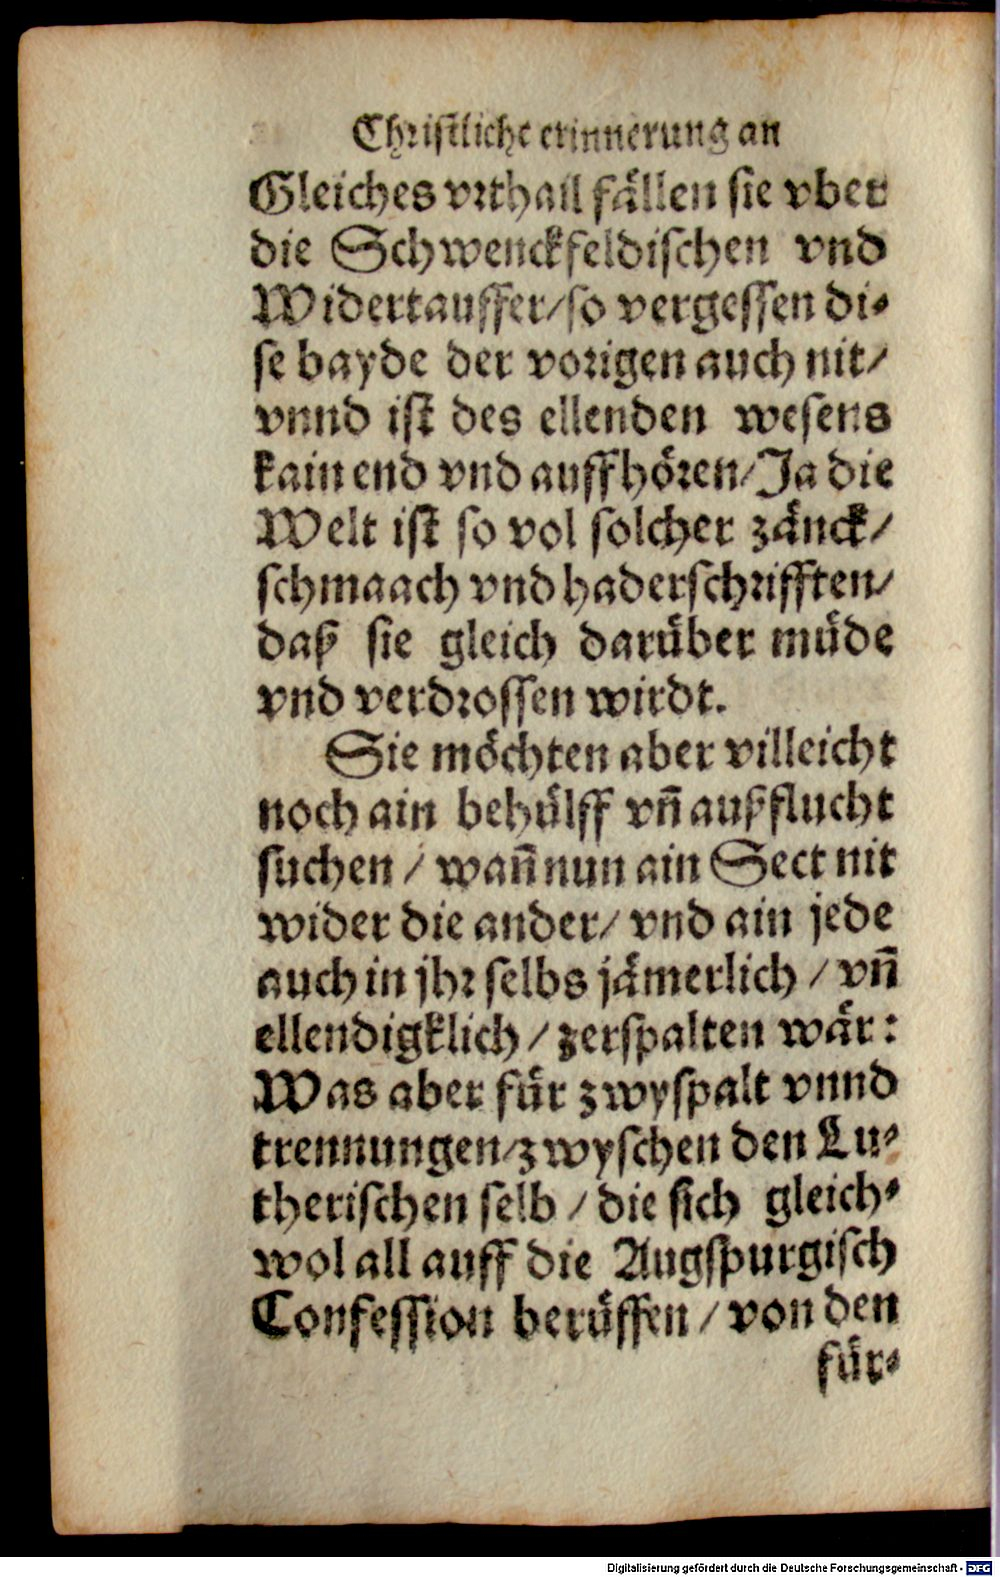 Christliche erinnerung an
Gleiches vrthail fällen sie vber
die Schwenckfeldischen vnd
Widertauffer/so vergessen di⸗
se bayde der vorigen auch nit/
vnnd ist des ellenden wesens
kain end vnd auffhören/Ja die
Welt ist so vol solcher zänck/
schmaach vnd haderschrifften/
daß sie gleich darüber müde
vnd verdrossen wirdt.
Sie möchten aber villeicht
noch ain behülff vñ außflucht
suchen / wañ nun ain Sect nit
wider die ander/ vnd ain jede
auch in jhr selbs jämerlich / vñ
ellendigklich / zerspalten wär:
Was aber für zwyspalt vnnd
trennungen/zwyschen den Lu⸗
therischen selb / die sich gleich⸗
wol all auff die Augspurgisch
Confession berüffen / von den
für⸗
Digitalisierung gefördert durch die Deutsche Forschungsgemeinschaft - DFG